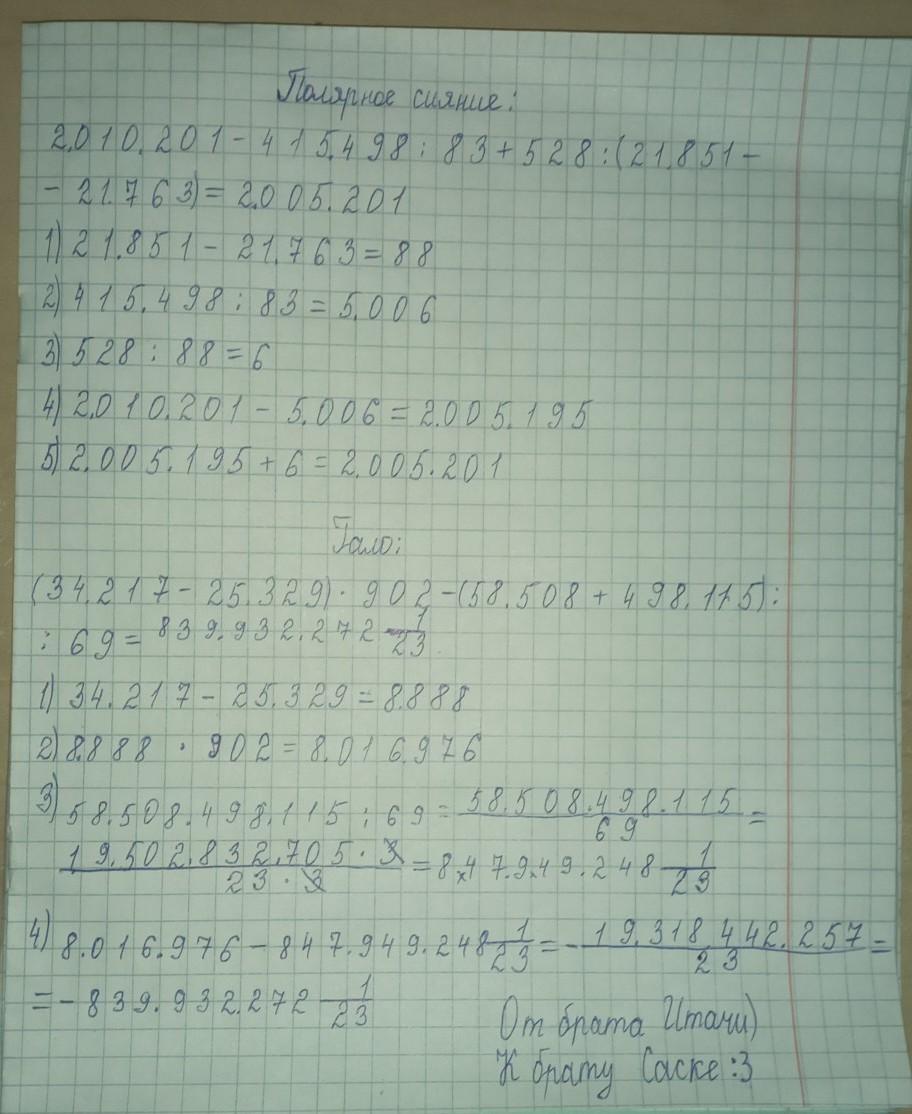 Полярное сияние:
2.010.201 - 415.498 : 83 + 528 : (21.851 -
- 21.763) = 2.005.201
1) 21.851 - 21.763 = 88
2) 415.498 : 83 = 5.006
3) 528 : 88 = 6
4) 2.010.201 - 5.006 = 2.005.195
5) 2.005.195 + 6 = 2.005.201
Гало:
(34.217 - 25.329) · 902 - (58.508 + 498.115) :
: 69 = 839.932.272 1/23
1) 34.217 - 25.329 = 8.888
2) 8.888 · 902 = 8.016.976
3) 58.508.498.115 : 69 = 58.508.498.115/69 =
19.502.832.705 · 3/23 · 3 = 847.949.248 1/23
4) 8.016.976 - 847.949.248 1/23 = - 19.318.442.257/23 =
= - 839.932.272 1/23
От брата Итачи)
К брату Саске :3